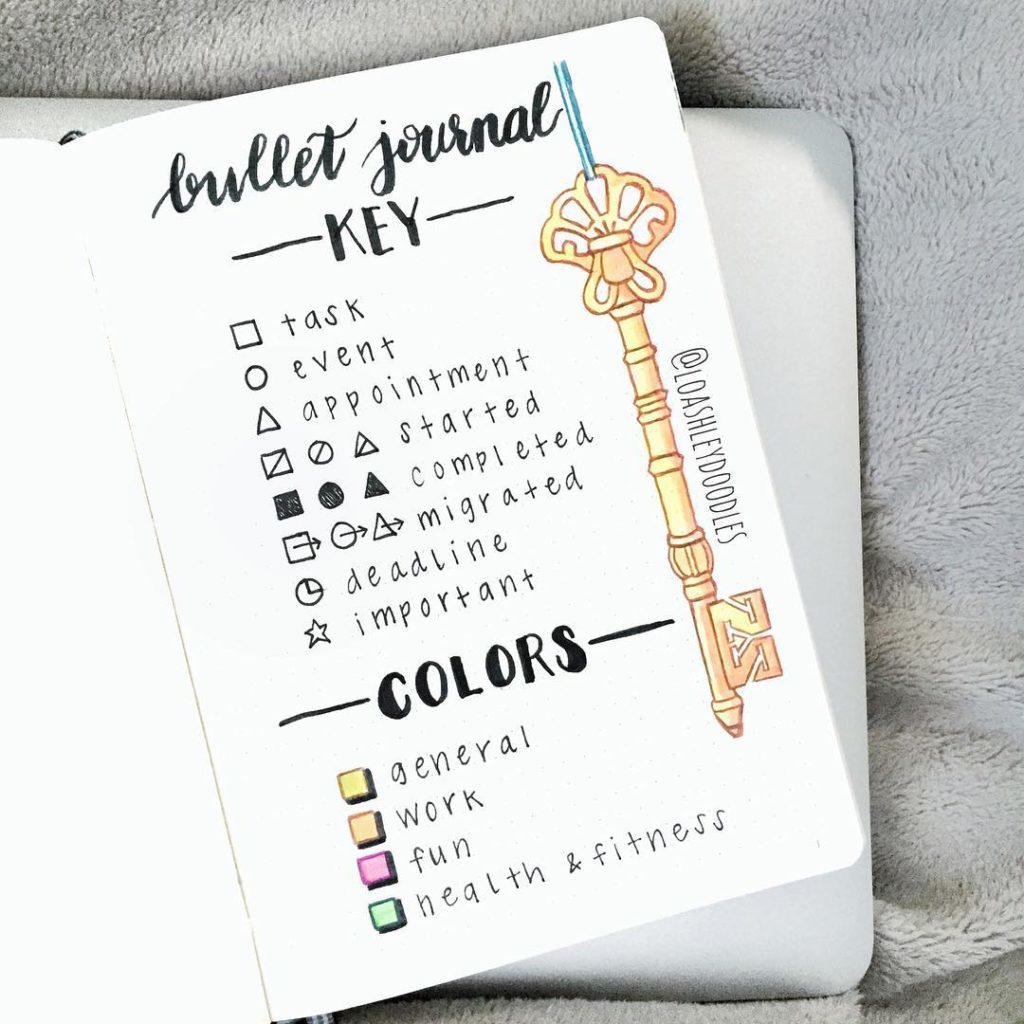 bullet journal
KEY
task
event
appointment
started
completed
migrated
deadline
important
COLORS
general
work
fun
health & fitness
@LOASHLEYDOODLES